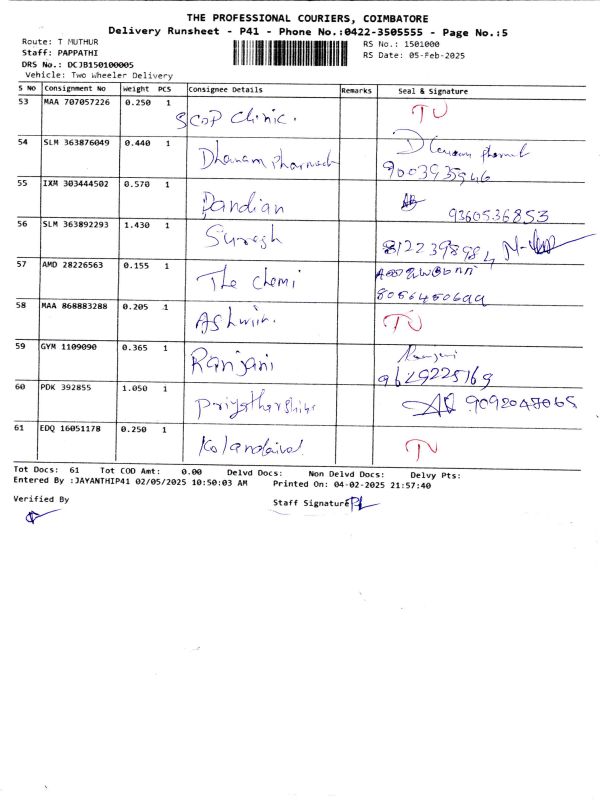 THE PROFESSIONAL COURIERS, COIMBATORE
Delivery Runsheet - P41 - Phone No.:0422-3505555 - Page No.:5
Route: T MUTHUR
RS No.: 1501000
Staff: PAPPATHI
RS Date: 05-Feb-2025
DRS No.: DCJB150100005
Vehicle: Two Wheeler Delivery
S No Consignment No Weight PCS Consignee Details Remarks Seal & Signature
53 MAA 707057226 0.250 1 SCOP Clinic. TU
54 SLM 363876049 0.440 1 Dhanam Pharmach Dhanam Pharmach
9003935946
55 IXM 303444502 0.570 1 Pandian 9360536853
56 SLM 363892293 1.430 1 Suresh 8122398984
57 AMD 28226563 0.155 1 The Chemi
8056450699
58 MAA 868883288 0.205 1 Ashwin. TU
59 GYM 1109090 0.365 1 Ranjani Ranjani
9629225169
60 PDK 392855 1.050 1 Priyatharshini 9092048065
61 EDQ 16051178 0.250 1 Kolandaivel TU
Tot Docs: 61 Tot COD Amt: 0.00 Delvd Docs: Non Delvd Docs: Delvy Pts:
Entered By :JAYANTHIP41 02/05/2025 10:50:03 AM Printed On: 04-02-2025 21:57:40
Verified By
Staff Signature